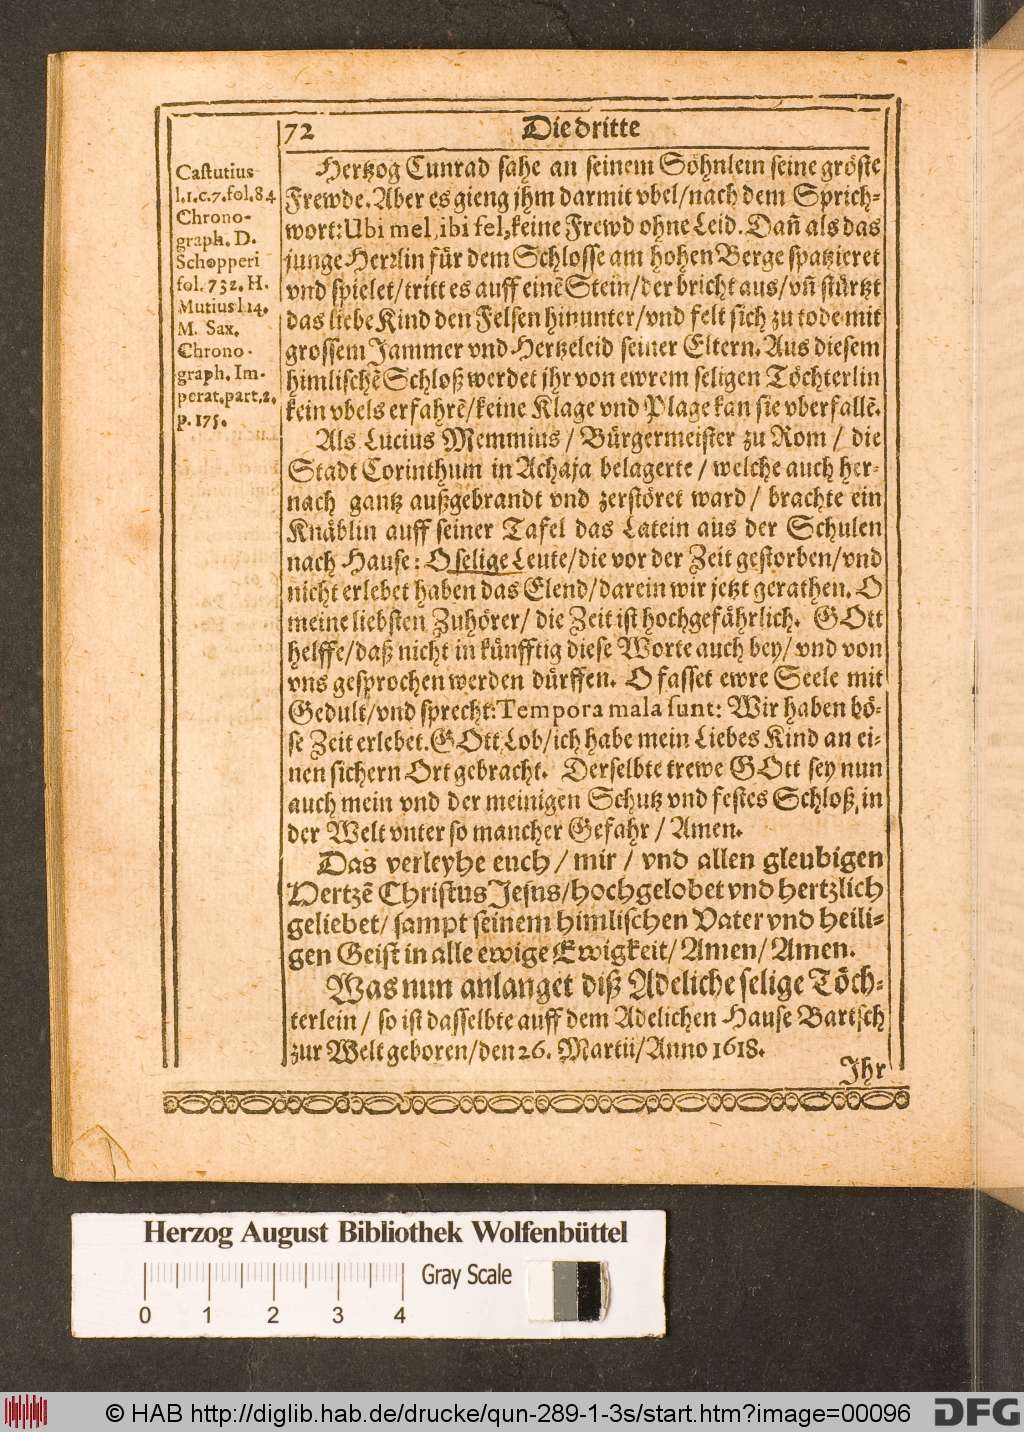 72 Die dritte
Castutius
l.1.c.7.fol.84
Chrono-
graph. D.
Schopperi
fol. 732. H.
Mutius l 14.
M. Sax.
Chrono-
graph. Im-
perat. part. 2.
p. 175.
Hertzog Cunrad sahe an seinem Söhnlein seine gröste
Frewde. Aber es gieng jhm darmit vbel/nach dem Sprich-
wort: Ubi mel, ibi fel, keine Frewd ohne Leid. Dañ als das
junge Herrlin für dem Schlosse am hohen Berge spatzieret
vnd spielet/tritt es auff einē Stein/der bricht aus/vñ stürtzt
das liebe Kind den Felsen hinunter/vnd felt sich zu tode mit
grossem Jammer vnd Hertzeleid seiner Eltern. Aus diesem
himlischē Schloß werdet jhr von ewrem seligen Töchterlin
kein vbels erfahrē/keine Klage vnd Plage kan sie vberfallē.
Als Lucius Memmius / Bürgermeister zu Rom / die
Stadt Corinthum in Achaja belagerte / welche auch her-
nach gantz außgebrandt vnd zerstöret ward / brachte ein
Knäblin auff seiner Tafel das Latein aus der Schulen
nach Hause: O selige Leute/die vor der Zeit gestorben/vnd
nicht erlebet haben das Elend/darein wir jetzt gerathen. O
meine liebsten Zuhörer/ die Zeit ist hochgefährlich. GOtt
helffe/daß nicht in künfftig diese Worte auch bey/ vnd von
vns gesprochen werden dürffen. O fasset ewre Seele mit
Gedult/vnd sprecht: Tempora mala sunt: Wir haben bö-
se Zeit erlebet. GOtt Lob/ich habe mein Liebes Kind an ei-
nen sichern Ort gebracht. Derselbte trewe GOtt sey nun
auch mein vnd der meinigen Schutz vnd festes Schloß, in
der Welt vnter so mancher Gefahr / Amen.
Das verleyhe euch / mir / vnd allen gleubigen
Hertzē Christus Jesus/hochgelobet vnd hertzlich
geliebet/ sampt seinem himlischen Vater vnd heili-
gen Geist in alle ewige Ewigkeit/ Amen/ Amen.
Was nun anlanget diß Adeliche selige Töch-
terlein / so ist dasselbte auff dem Adelichen Hause Bartsch
zur Welt geboren/den 26. Martii/Anno 1618.
Jhr
Herzog August Bibliothek Wolfenbüttel
Gray Scale
0 1 2 3 4
© HAB http://diglib.hab.de/drucke/qun-289-1-3s/start.htm?image=00096
DFG